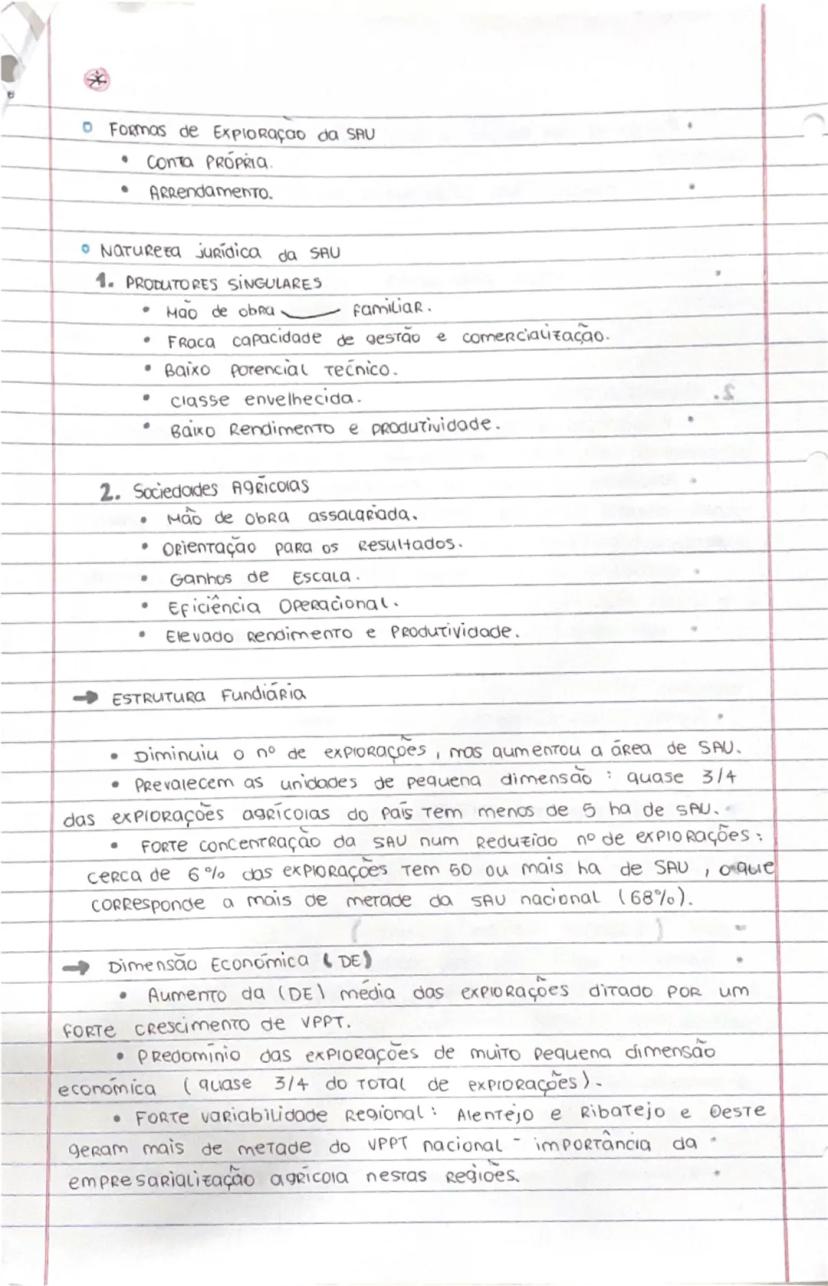 Formas de Exploração da SAU
• Conta PRÓPRIA.
• ARRendamento.
Natureza jurídica da SAU
1. PRODUTORES SINGULARES
• Mão de obra familiar.
• Fraca capacidade de gestão e comercialização.
• Baixo potencial técnico.
• classe envelhecida.
• Baixo Rendimento e produtividade.
2. Sociedades Agrícolas
• Mão de obra assalariada.
• Orientação para os Resultados.
• Ganhos de Escala.
• Eficiência Operacional.
• Elevado Rendimento e Produtividade.
→ ESTRUTURA Fundiária
• Diminuiu o nº de explorações, mas aumentou a área de SAU.
• Prevalecem as unidades de pequena dimensão: quase 3/4
das explorações agrícolas do país tem menos de 5 ha de SAU.
• Forte concentração da SAU num Reduzido nº de explorações:
cerca de 6% das explorações tem 50 ou mais ha de SAU, o que
corresponde a mais de metade da SAU nacional (68%).
→ Dimensão Económica (DE)
• Aumento da (DE) média das explorações ditado por um
forte crescimento de VPPT.
• Predomínio das explorações de muito pequena dimensão
económica (quase 3/4 do total de explorações).
• Forte variabilidade Regional: Alentejo e Ribatejo e Oeste
geram mais de metade do VPPT nacional - importância da
empresarialização agrícola nestas Regiões.